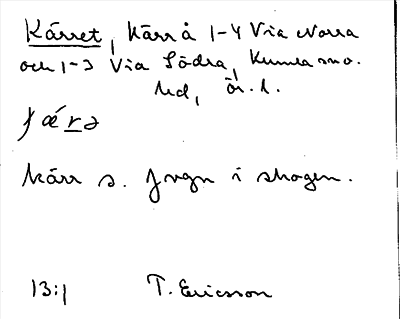 Kärret, Kärrå 1-4 Via Norra
och 1-3 Via Södra, Kumla sn o.
hd, ör. l.
kärr s. i skogen.
13:1 T. Ericsson